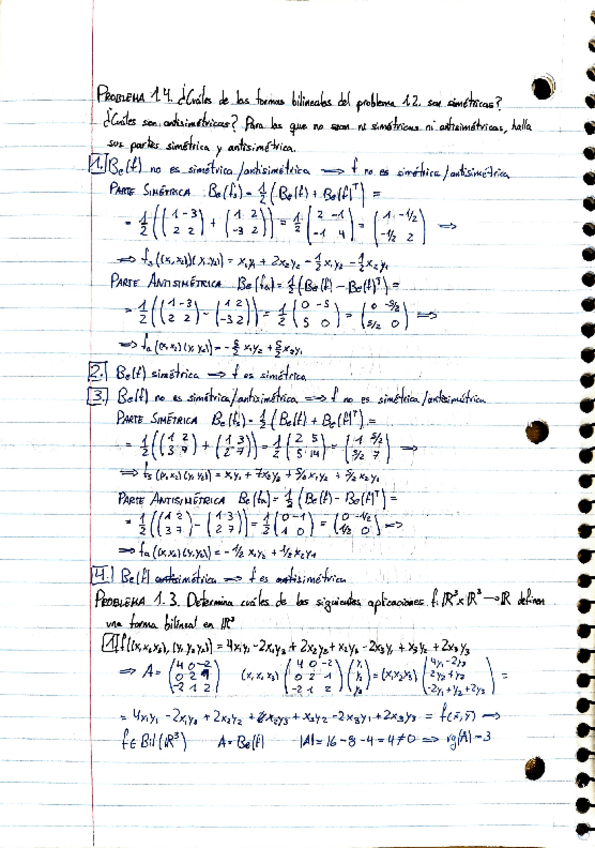 PROBLEMA 1.4. ¿Cuáles de las formas bilineales del problema 1.2. son simétricas?
¿Cuáles son antisimétricas? Para las que no sean ni simétricas ni antisimétricas, halla
sus partes simétrica y antisimétrica.
1. Be(f) no es simétrica/antisimétrica ⟹ f no es simétrica/antisimétrica
PARTE SIMÉTRICA Be(fs) = 1/2 (Be(f) + Be(f)^T) =
= 1/2 ((1 -3; 2 2) + (1 2; -3 2)) = 1/2 (2 -1; -1 4) = (1 -1/2; -1/2 2) ⟹
⟹ fs((x₁,x₂)(y₁,y₂)) = x₁y₁ + 2x₂y₂ - 1/2 x₁y₂ - 1/2 x₂y₁
PARTE ANTISIMÉTRICA Be(fa) = 1/2 (Be(f) - Be(f)^T) =
= 1/2 ((1 -3; 2 2) - (1 2; -3 2)) = 1/2 (0 -5; 5 0) = (0 -5/2; 5/2 0) ⟹
⟹ fa((x₁,x₂)(y₁,y₂)) = -5/2 x₁y₂ + 5/2 x₂y₁
2. Be(f) simétrica ⟹ f es simétrica
3. Be(f) no es simétrica/antisimétrica ⟹ f no es simétrica/antisimétrica
PARTE SIMÉTRICA Be(fs) = 1/2 (Be(f) + Be(f)^T) =
= 1/2 ((1 2; 3 7) + (1 3; 2 7)) = 1/2 (2 5; 5 14) = (1 5/2; 5/2 7) ⟹
⟹ fs((x₁,x₂)(y₁,y₂)) = x₁y₁ + 7x₂y₂ + 5/2 x₁y₂ + 5/2 x₂y₁
PARTE ANTISIMÉTRICA Be(fa) = 1/2 (Be(f) - Be(f)^T) =
= 1/2 ((1 2; 3 7) - (1 3; 2 7)) = 1/2 (0 -1; 1 0) = (0 -1/2; 1/2 0) ⟹
⟹ fa((x₁,x₂)(y₁,y₂)) = -1/2 x₁y₂ + 1/2 x₂y₁
4. Be(f) simétrica ⟹ f es simétrica
PROBLEMA 1.3. Determina cuáles de las siguientes aplicaciones f: ℝ³×ℝ³ → ℝ definen
una forma bilineal en ℝ³
1. f((x₁,x₂,x₃),(y₁,y₂,y₃)) = 4x₁y₁ - 2x₁y₃ + 2x₂y₂ + x₂y₃ - 2x₃y₁ + x₃y₂ + 2x₃y₃
⟹ A = (4 0 -2; 0 2 1; -2 1 2) (x₁ x₂ x₃) (4 0 -2; 0 2 1; -2 1 2) (y₁; y₂; y₃) = (x₁ x₂ x₃) (4y₁ - 2y₃; 2y₂ + y₃; -2y₁ + y₂ + 2y₃) =
= 4x₁y₁ - 2x₁y₃ + 2x₂y₂ + x₂y₃ + x₃y₂ - 2x₃y₁ + 2x₃y₃ = f(x̄,ȳ) ⟹
f ∈ Bil(ℝ³) A = Be(f) |A| = 16 - 8 - 4 = 4 ≠ 0 ⟹ rg(A) = 3